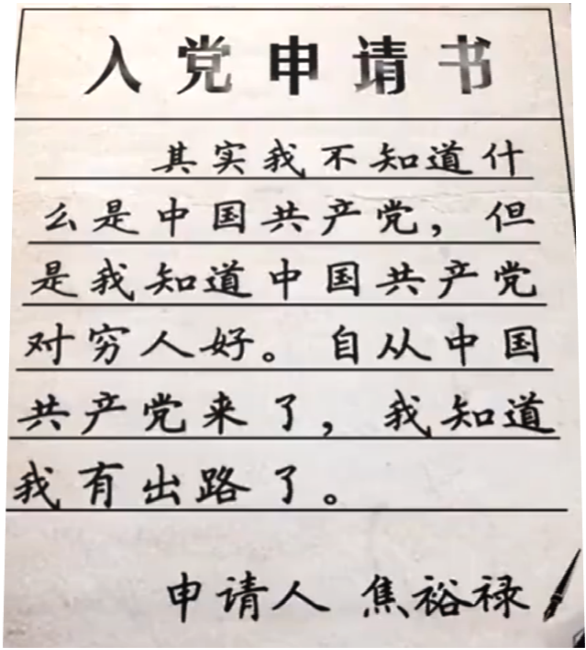 入党申请书
其实我不知道什
么是中国共产党，但
是我知道中国共产党
对穷人好。自从中国
共产党来了，我知道
我有出路了。
申请人 焦裕禄